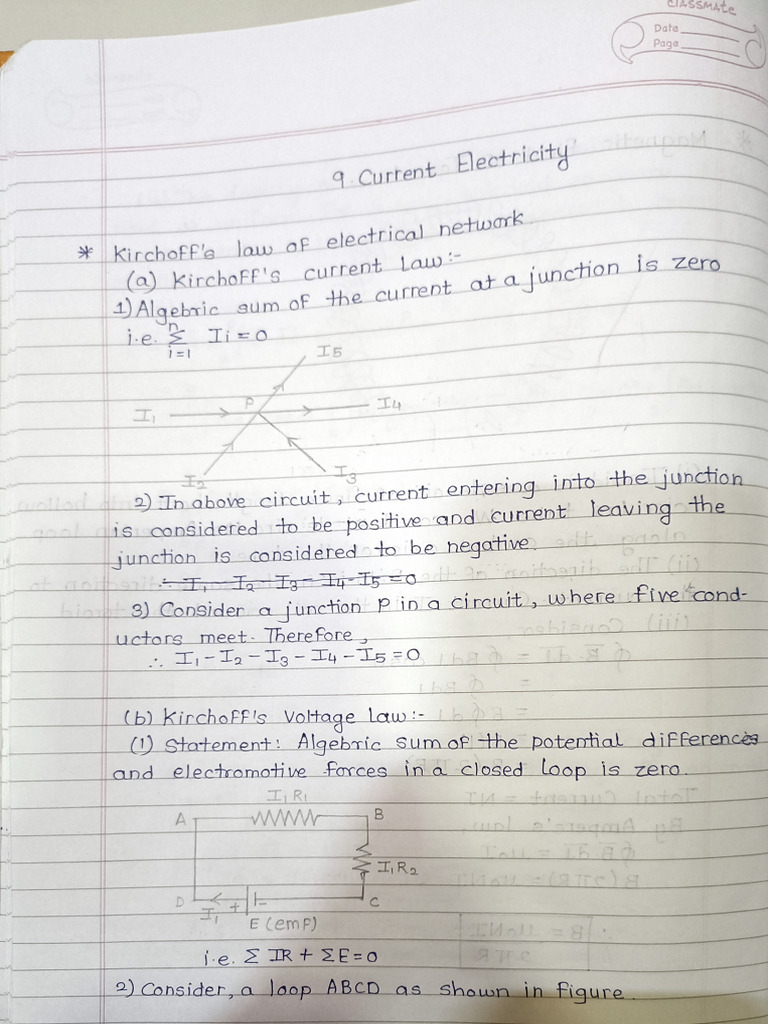 classmate
Date
Page
9. Current Electricity
* Kirchoff's law of electrical network
(a) Kirchoff's current Law:-
1) Algebric sum of the current at a junction is zero
i.e. n Σ i=1 Ii = 0
I5
P
I1
I4
I2
I3
2) In above circuit, current entering into the junction
is considered to be positive and current leaving the
junction is considered to be negative.
∴ I1 - I2 - I3 - I4 - I5 = 0
3) Consider a junction P in a circuit, where five cond-
uctors meet. Therefore,
∴ I1 - I2 - I3 - I4 - I5 = 0
(b) Kirchoff's Voltage Law:-
(1) Statement: Algebric sum of the potential differences
and electromotive forces in a closed loop is zero.
I1R1
A
B
I1R2
D
C
I1
+
-
E (emf)
i.e. Σ IR + ΣE = 0
2) Consider, a loop ABCD as shown in figure.